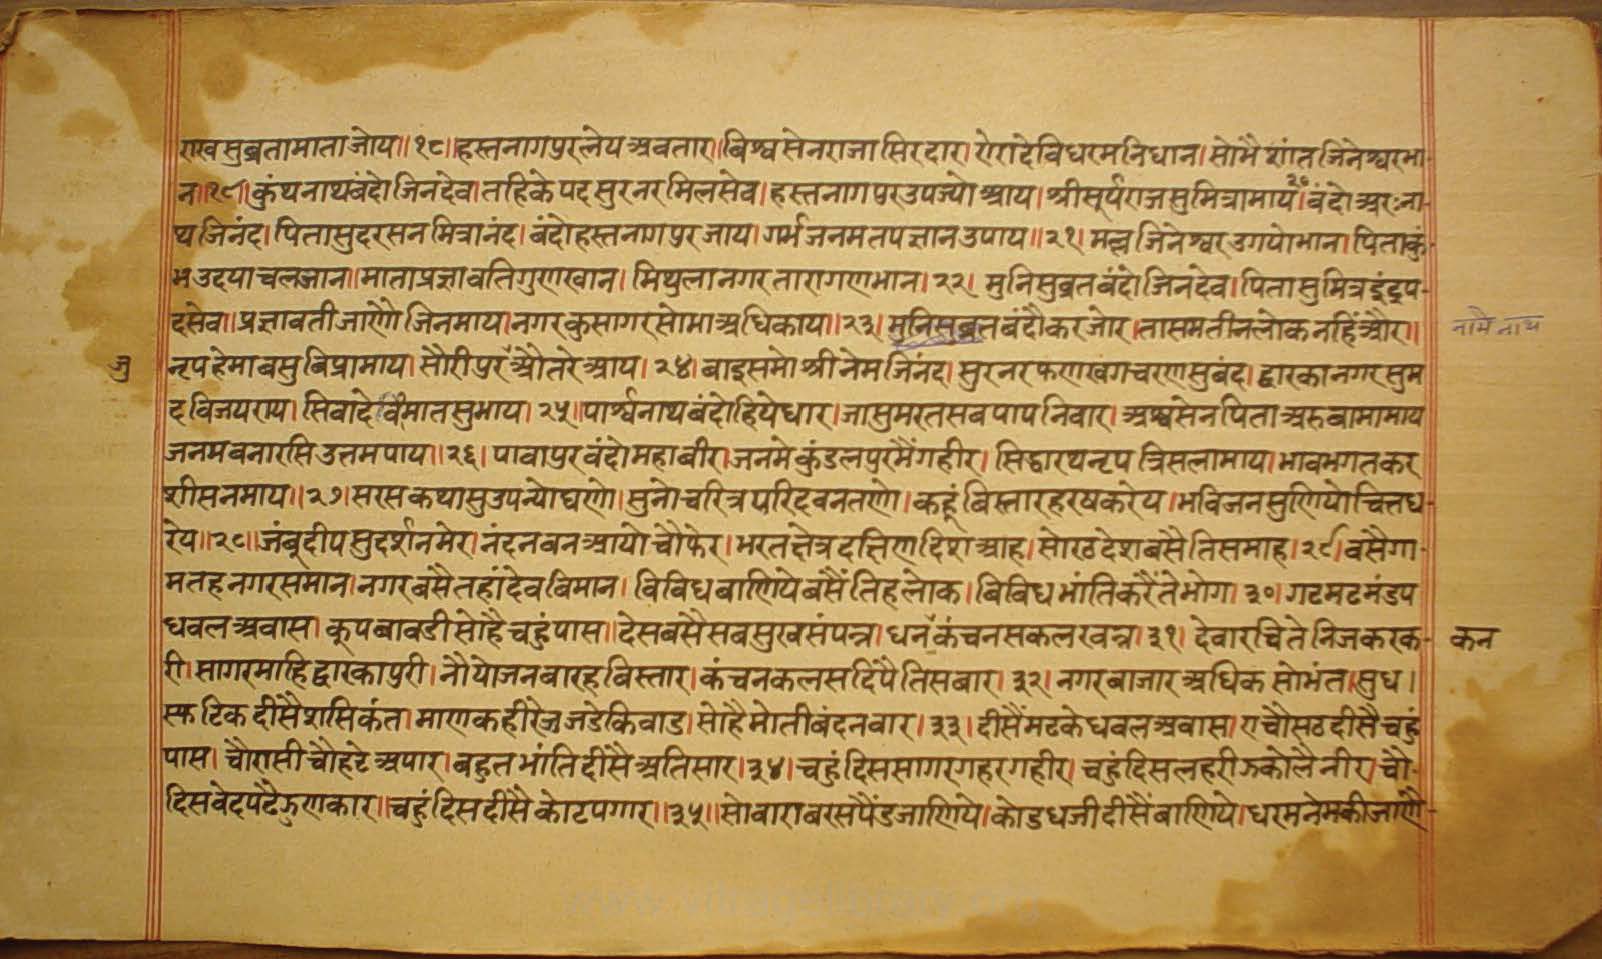 राखसुब्रतामाताजोय॥१८॥हस्तनागपुरलेयअवतार॥बिश्वसेनराजासिरदार।रोरांदेविधरमनिधान।सोमैशांतजिनेश्वरभा-
न॥१९॥कुंथनाथबंदोजिनदेव।तहिकेपदसुरनरमिलसेव।हस्तनागपुरउपज्योआय।श्रीसूर्यराजसुमित्रामाय।२०बंदोअरःना-
थजिनंद।पितासुदरसनमित्रानंद।बंदोहस्तनागपुरजाय।गर्भजनमतपज्ञानउपाय॥२१।मल्लजिनेश्वरउगयोभान।पिताकुं-
भउदयाचलजान॥माताप्रज्ञावतिगुणखान।मिथुलानगरतारागणभान।२२।मुनिसुब्रतबंदोजिनदेव।पितासुमित्रइंद्रप-
दसेव॥प्रज्ञावतीजाणैजिनमाय।नगरकुसागरसोमाअधिकाय॥२३।मुनिसुब्रतबंदौकरजोर।तासमतीनलोकनहिंऔर॥ नामै नाथ
नृपहेमाबसुबिप्रामाय।सौरीपुरऔतरेआय।२४।बाइसमोश्रीनेमजिनंद।सुरनरफणखगचरणसुबंद।द्वारकानगरसुम
दविजयराय।सिवादेविमातसुभाय।२५॥पार्श्वनाथबंदोहियेधार।जासुमरतसबपापनिवार।अश्वसेनपिताअरुबामामाय
जनमबनारसिउत्तमपाय॥२६।पावापुरवंदोमहाबीर।जनमेकुंडलपुरमैंगहीर।सिद्धारथनृपत्रिसलामाय।भावभगतकर
शीसनमाय॥२७।सरसकथासुउपन्योघणो।सुनोचरित्रपरिदवनतणो।कहूंबिस्तारहरषकरेय।भविजनसुणियोचित्तध-
रेय॥२८॥जंबूदीपसुदर्शनमेर।नंदनवनआयोचौफेर।भरतक्षेत्रदक्षिणदिशआह।सोरठदेशबसैतिसमाह।२९।बसैगा-
मतहनगरसमान।नगरबसैतहांदेवबिमान।विविधबाणियेबसैंतिहलोक।बिबिधभांतिकरैंतेभोग।३०।गटमटमंडप
धवलअवास।कूपबावडीसोहैचहुंपास॥देसबसैसबसुखसंपन्न।धनकंचनसकलरवन्न।३१।देवारचितेनिजकरक- कन
री।सागरमाहिद्वारकापुरी।नौयोजनबारहबिस्तार।कंचनकलसदिपैतिसबार।३२।नगरबाजारअधिकसोभंत।सुध।
स्फटिकदीसैशसिकंत।माणकहीरेजजडेकिवाड।सोहैमोतीबंदनवार।३३।दीसैंमटकेधवलअवास।एचौसठदीसैचहुं
पास।चौरासीचौहटेअपार।बहुतभांतिदीसैअतिसार।३४।चहुंदिससागरगहरगहीर।चहुंदिसलहरीझकोलैनीर।चौ-
दिसवेदपटैझुणकार॥चहुंदिसदीसैकोटपगार॥३५॥सोबाराबरसपैंडजाणिये।कोडधजीदीसैंबाणिये।धरमनेमकीजाणै-